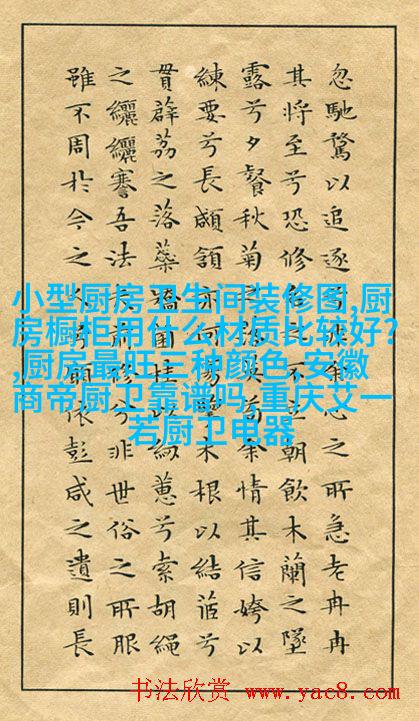 忽馳騖以追逐心之所急老冉冉
其將至兮恐修不立朝飲木蘭之墜
露兮夕餐秋菊之英苟余情其信姱以
練要兮長顑頷亦何傷木根以結茝兮
貫薜荔之落蘂矯菌桂以紉蕙兮索胡繩
之纚纚謇吾法前修兮非世俗之所服
雖不周於今之人願依彭咸之遺則長
小型厨房卫生间装修图,厨
房橱柜用什么材质比较好?
,厨房最旺三种颜色,安徽
商帝厨卫靠谱吗,重庆艾一
若厨卫电器
书法欣赏 www.yac8.com